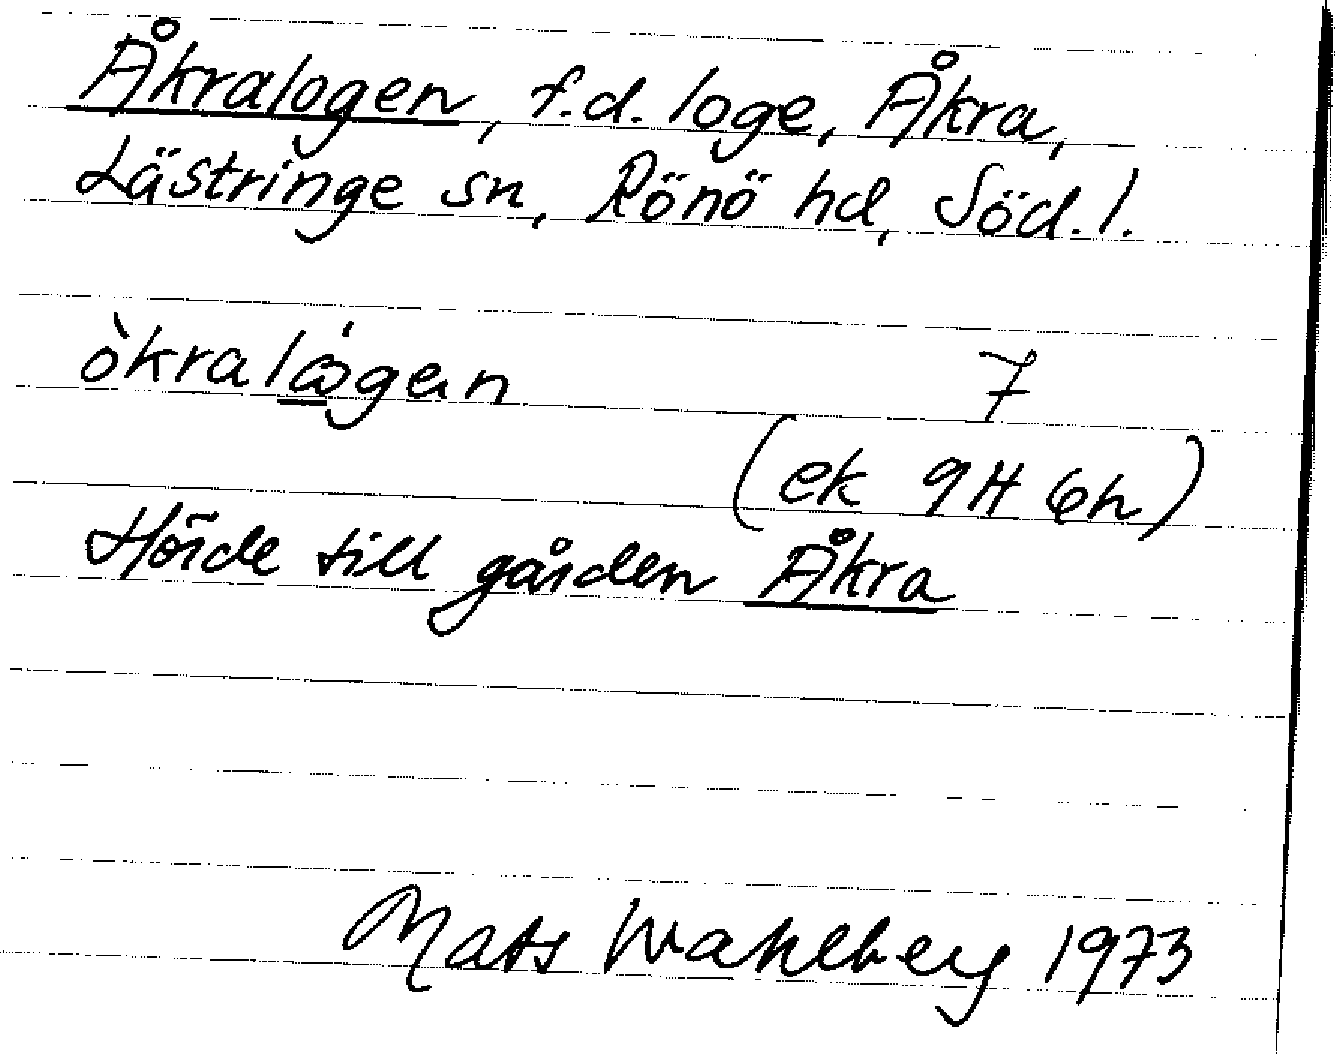 Åkralogen, f.d. loge, Åkra,
Lästringe sn, Rönö hd, Söd. l.
7
(ek 9H 6h)
Hörde till gården Åkra
Mats Wahlberg 1973